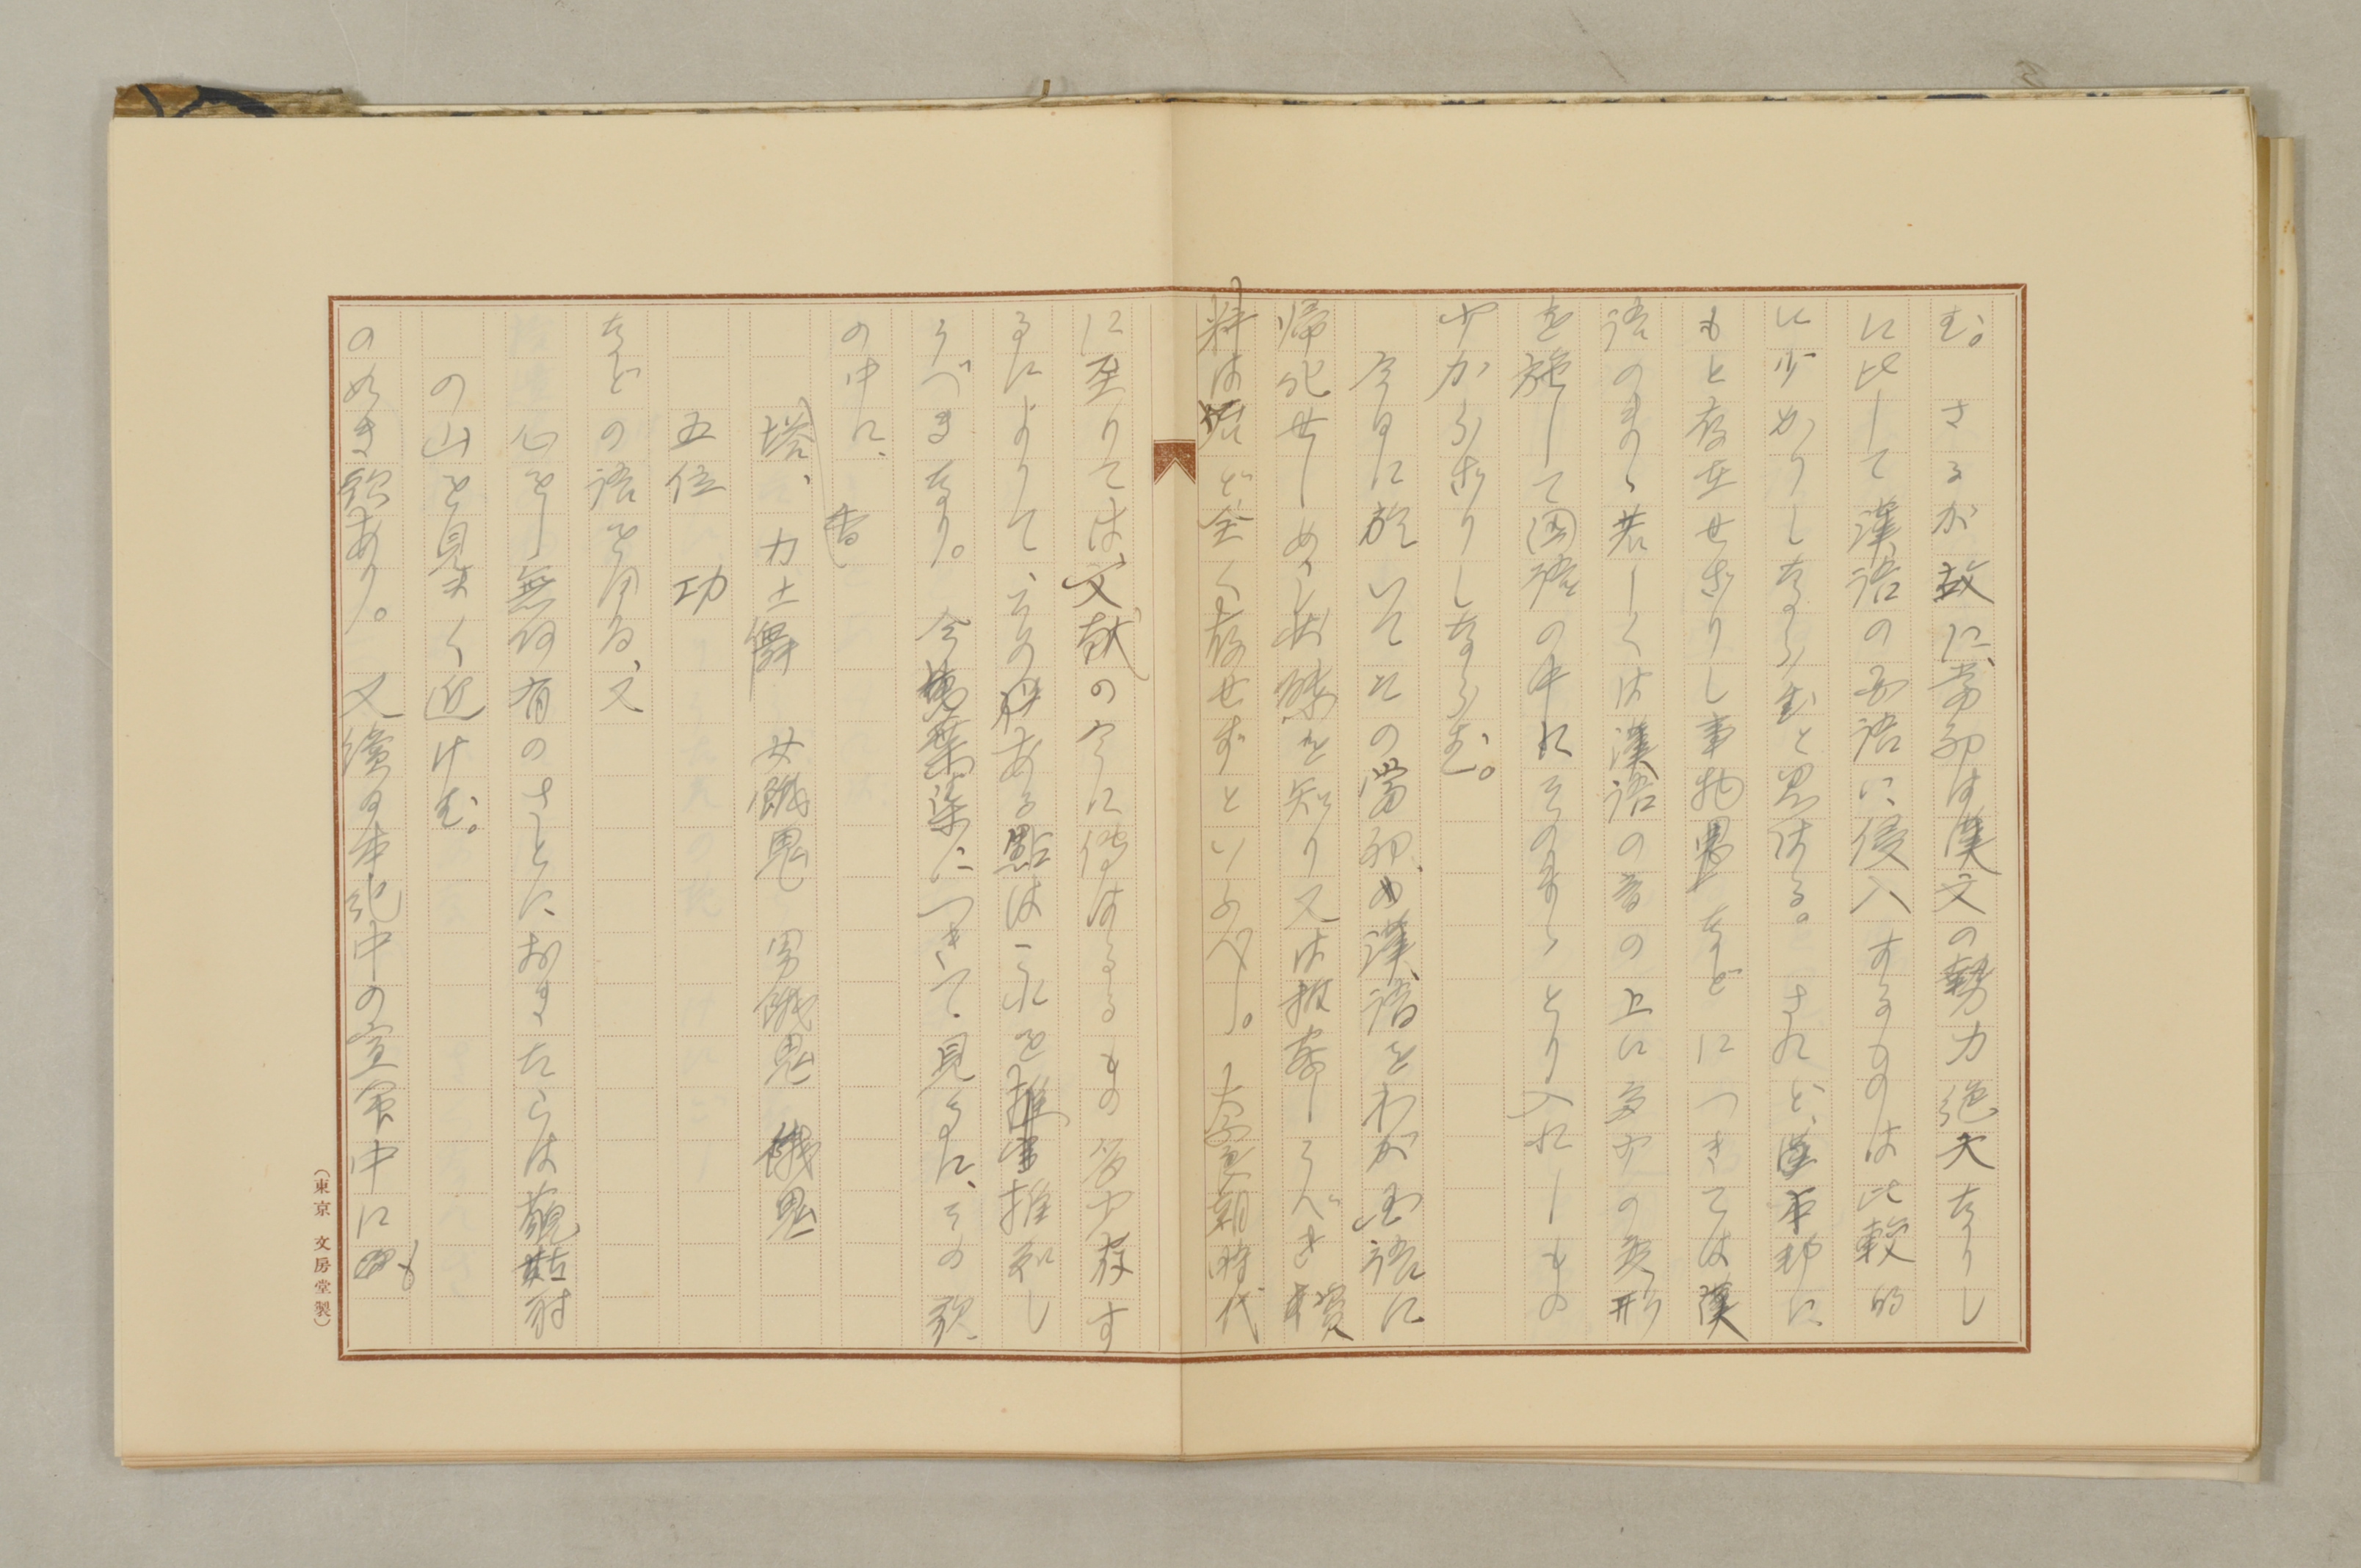 む。さるが故に、当初は漢文の勢力絶大なりし
に比して漢語の国語に侵入するものは比較的
に少かりしならむと思はる。されど、本邦に
もと存在せざりし事物などにつきては漢
語のまゝ若しくは漢語の音の上に多少の変形
を施して国語の中にそのまゝとり入れしもの
少からざりしならむ。
今日に於いてその当初の漢語をわが国語に
帰化せしめし状態を知り又は推察しうべき
料は殆ど全く存せずといふべし。大宝朝時代
に至りては、文献の今に伝はるもの多少存す
るによりて、その
うべきなり。今萬葉集につきて見るに、その歌
の中に、
香
塔、力士舞 女餓鬼 男餓鬼 餓鬼
五位 功
などの語を用ゐ、又
心をし無何有のさとにおきたらば藐姑射
の山を見まく近けむ。
の如き歌あり。又續日本紀中の宣命中にも
(東京 文房堂製)